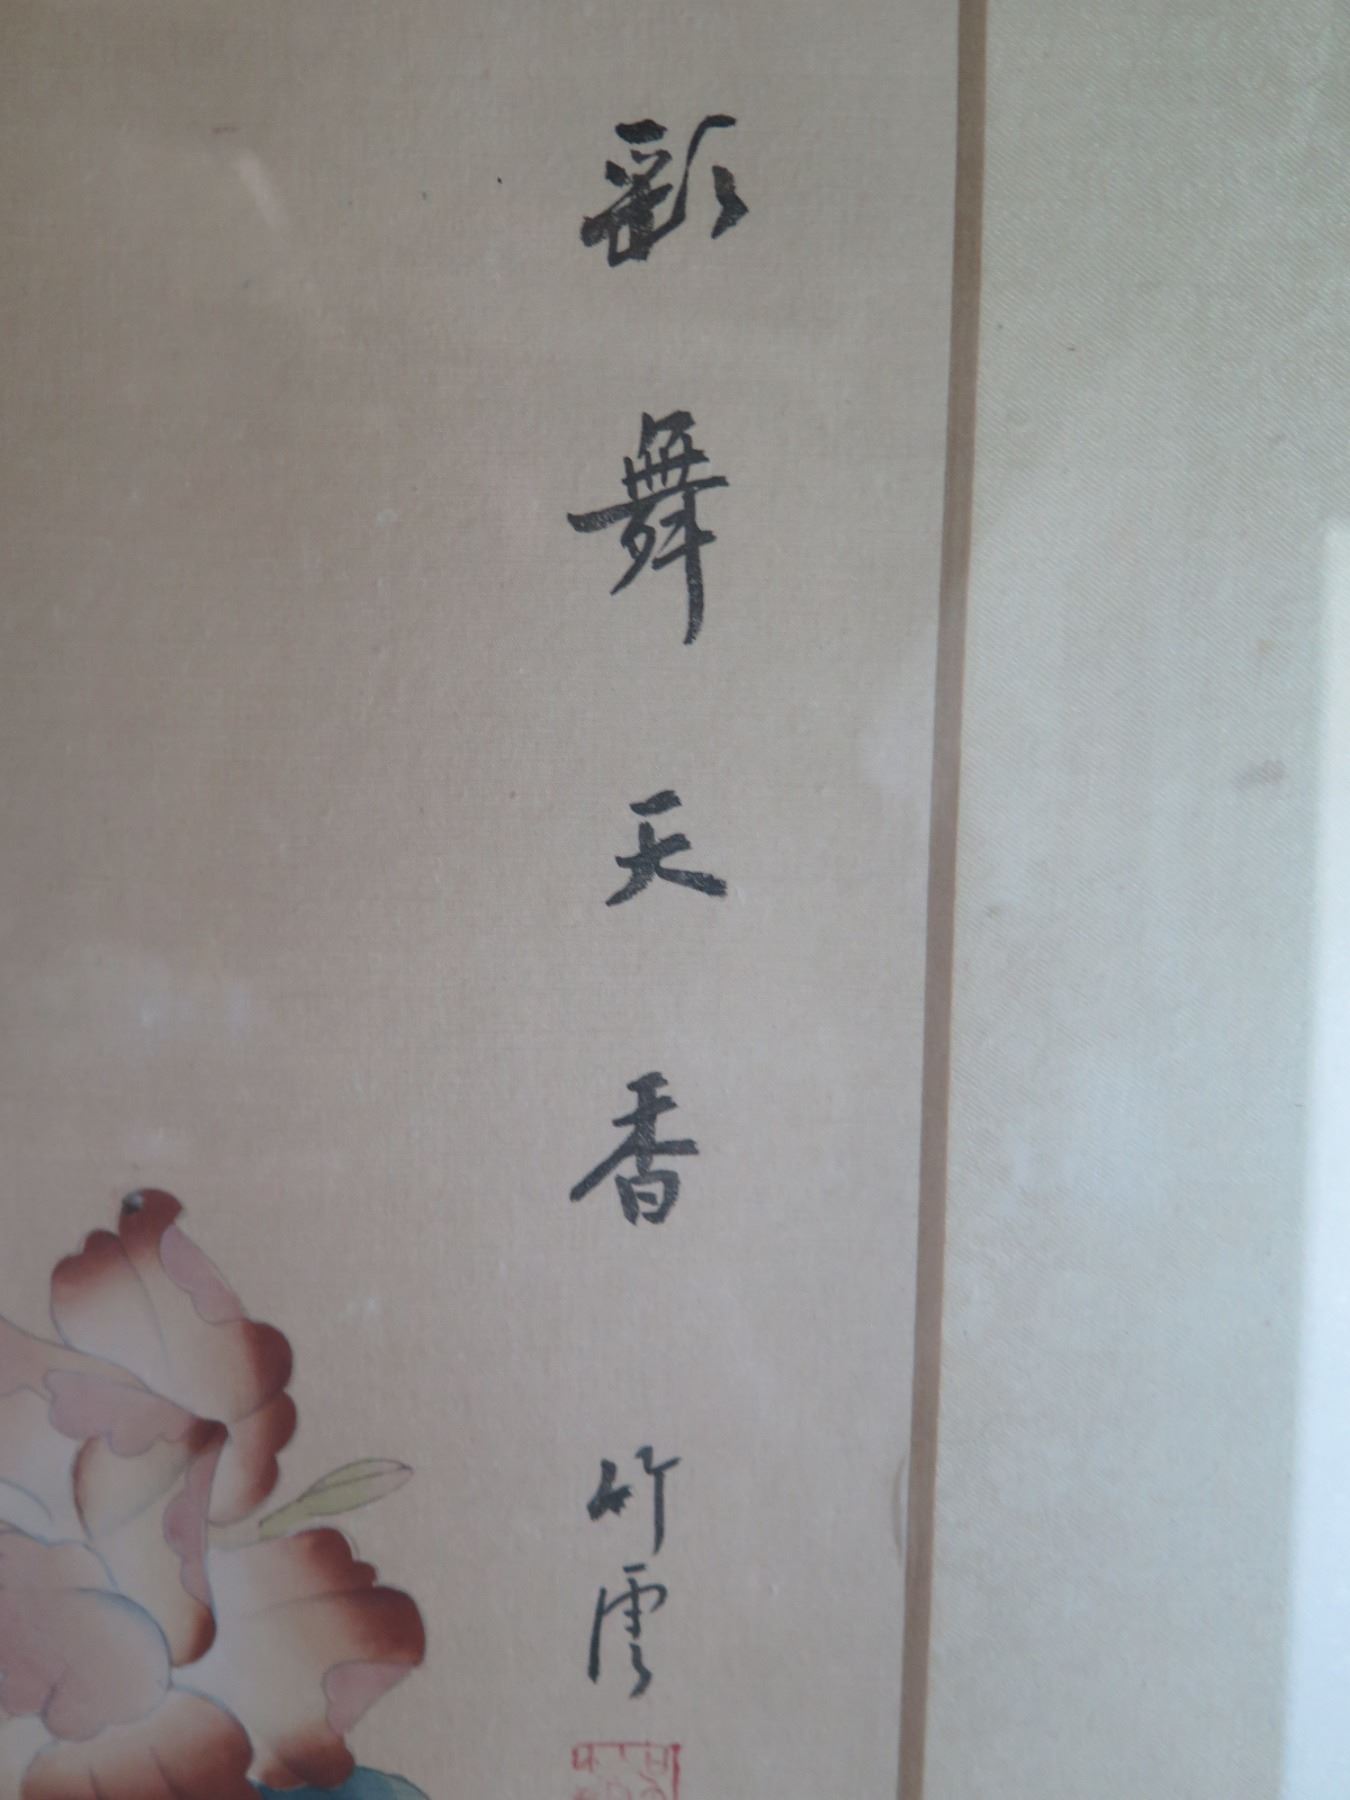 舞天香
竹雲